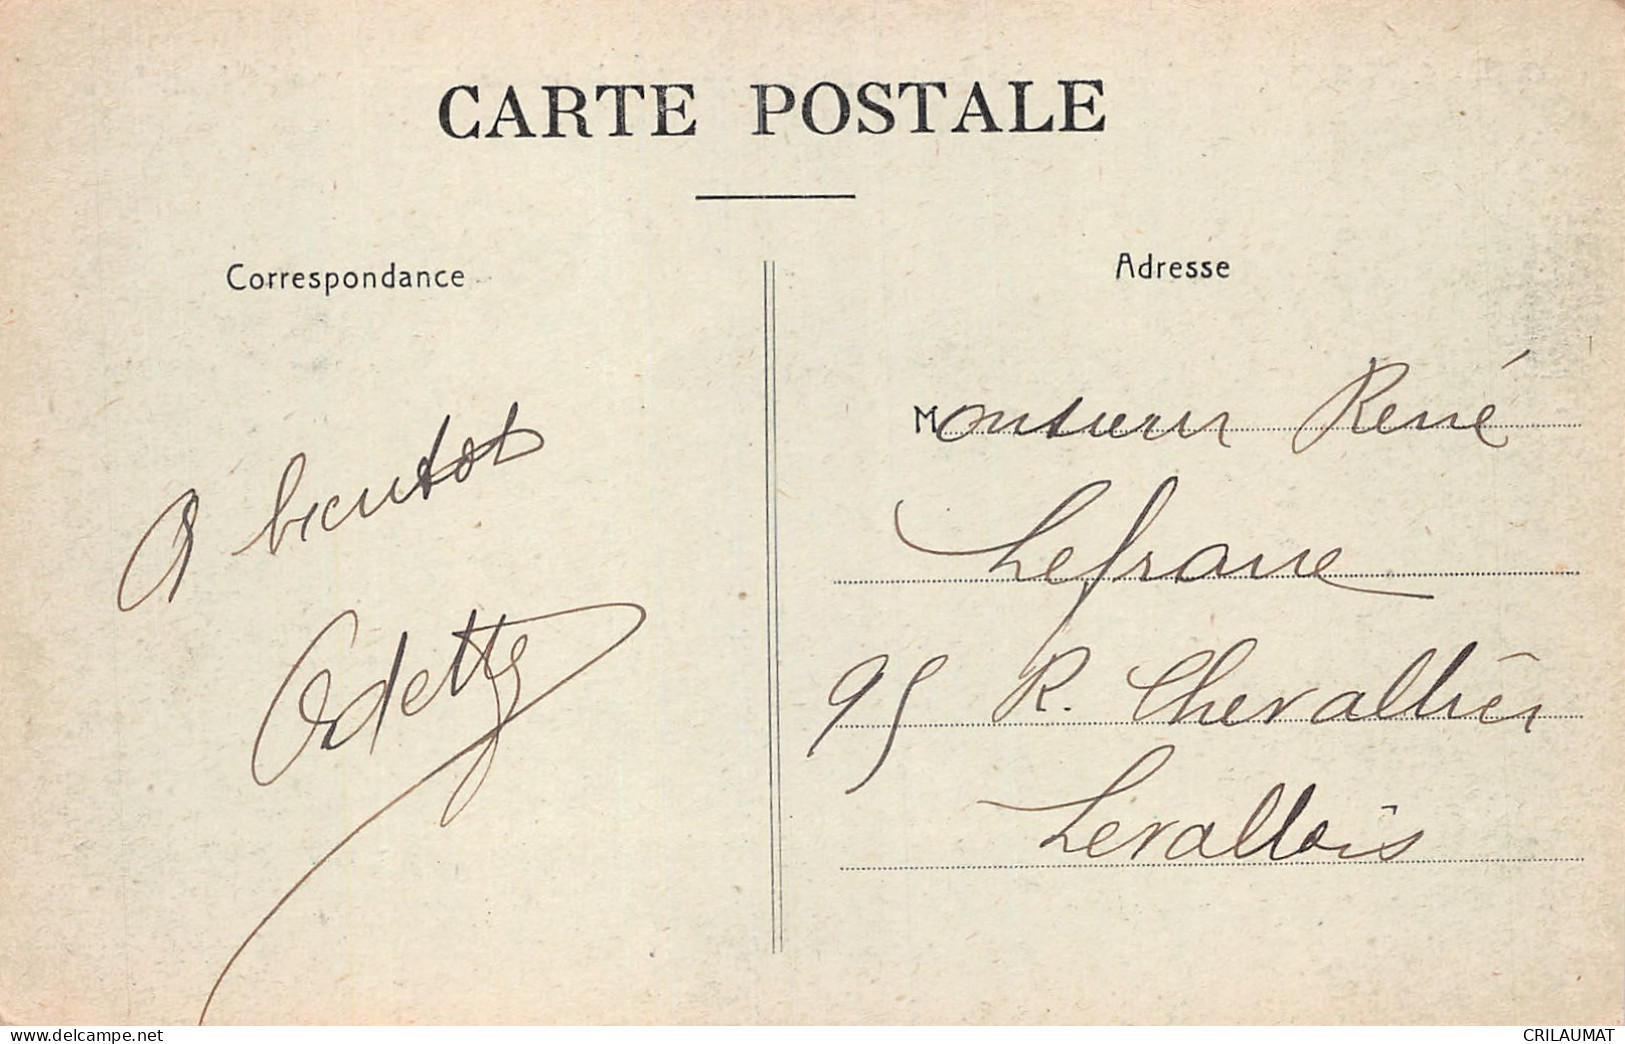 CARTE POSTALE
Correspondance
A bientot
Odette
Adresse
Monsieur René
Lefranc
95 R. Chevallier
Levallois
www.delcampe.net
CRILAUMAT